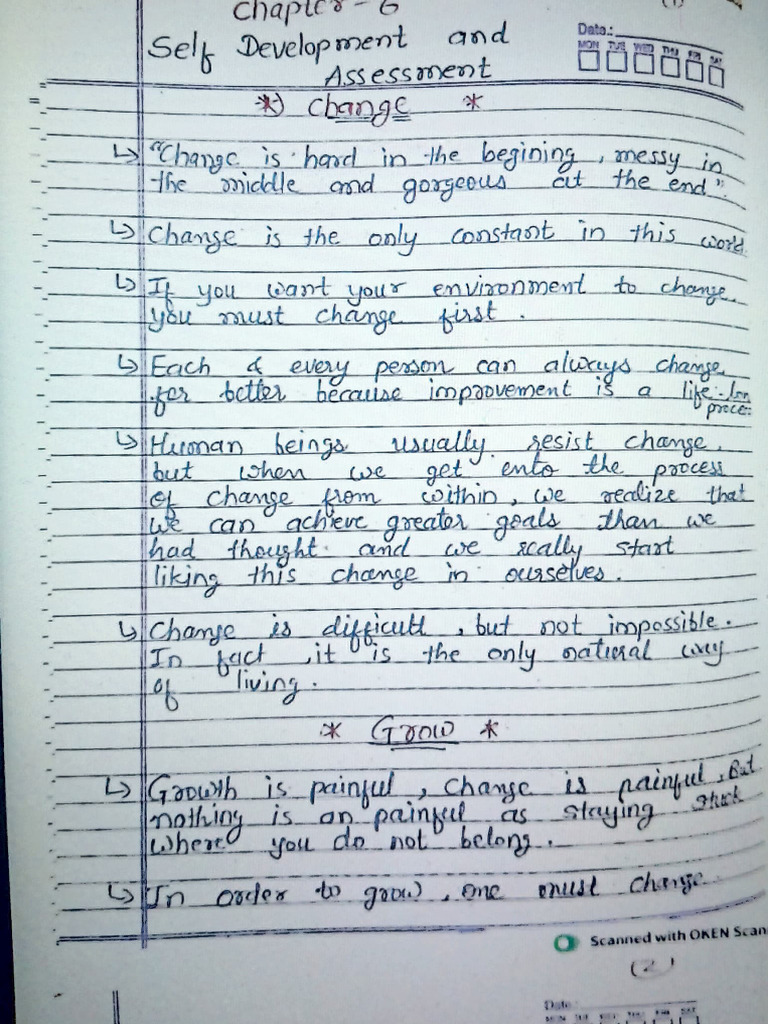 Chapter - 6
(1)
Self Development and
Assessment
Date:
MON TUE WED THU FRI SAT
* Change *
↳ "Change is hard in the begining, messy in
the middle and gorgeous at the end".
↳ Change is the only constant in this world
↳ If you want your environment to change
you must change first.
↳ Each & every person can always change
for better because improvement is a life-lon
proces
↳ Human beings usually resist change
but when we get ento the process
of change from within, we realize that
we can achieve greater goals than we
had thought and we really start
liking this change in ourselves.
↳ Change is difficult, but not impossible.
In fact, it is the only natural way
of living.
* Grow *
↳ Growth is painful, change is painful, But
nothing is an painful as staying stuck
where you do not belong.
↳ In order to grow, one must change
Scanned with OKEN Scan
(2)
Date:
MON TUE WED THU FRI SAT